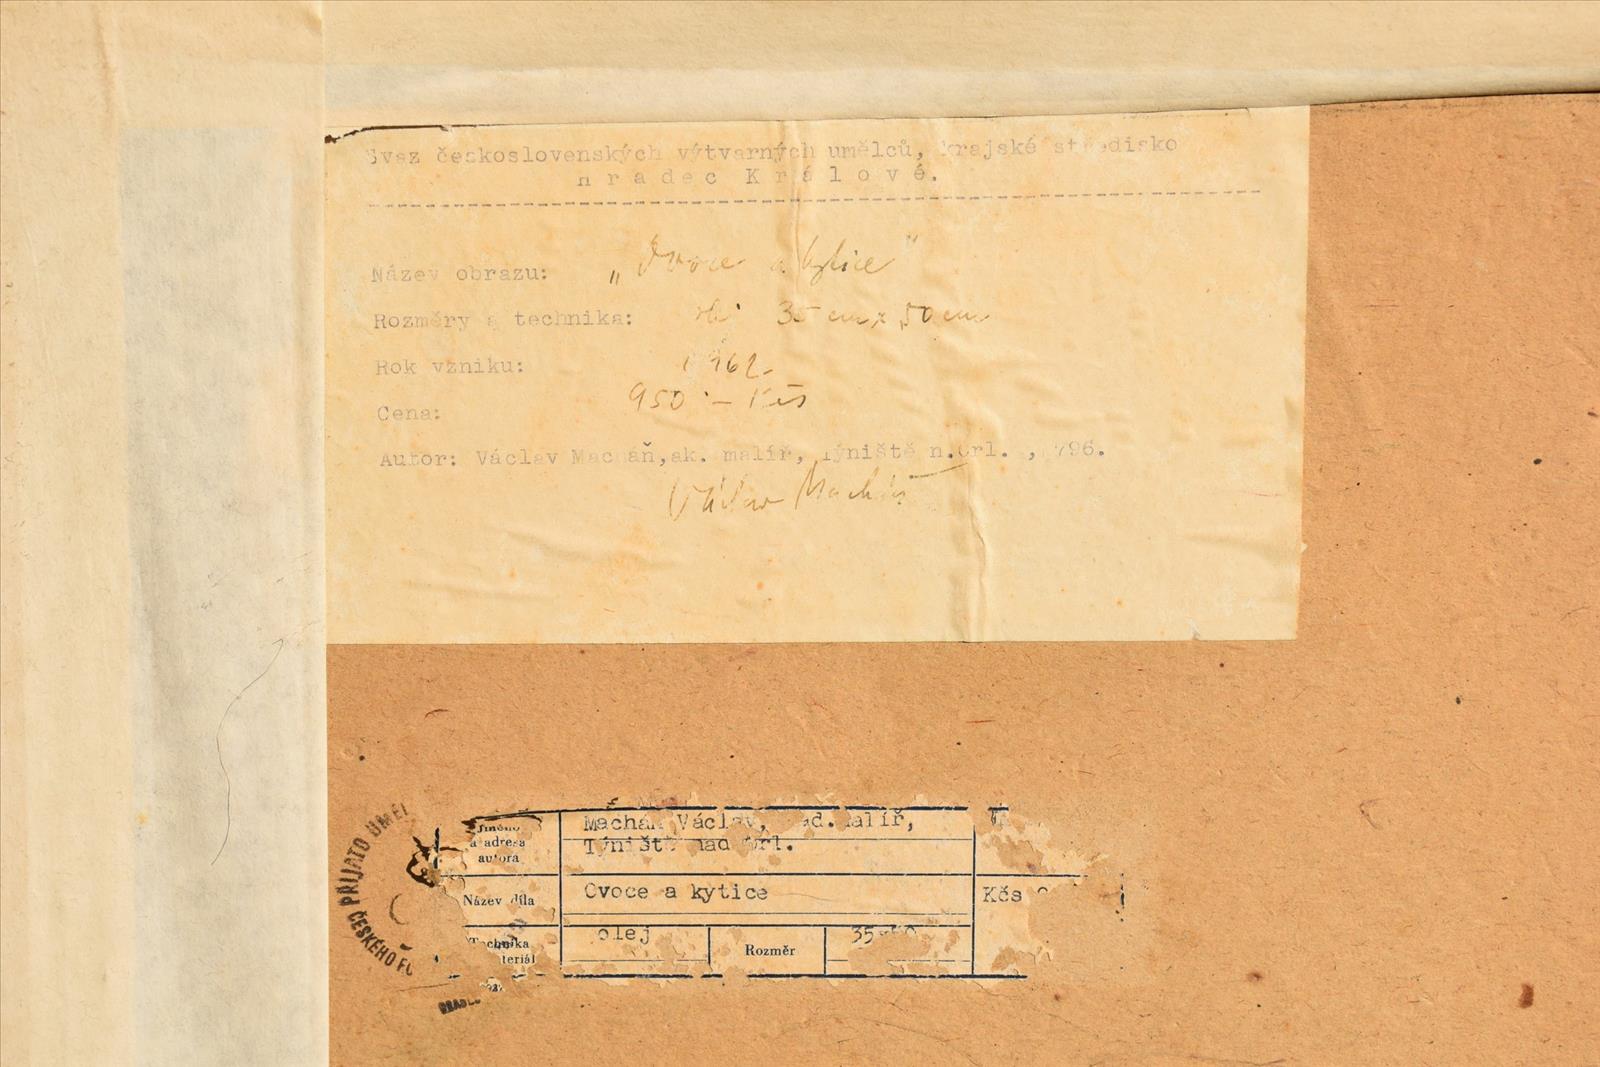 Svaz československých výtvarných umělců, krajské středisko
Hradec Králové.
Název obrazu: „Ovoce a kytice"
Rozměry a technika: olej 35 cm x 50 cm
Rok vzniku: 1962.
Cena: 950.- Kčs
Autor: Václav Macháň, ak. malíř, Týniště n.Orl. , 796.
Václav Macháň
PŘIJATO UMĚL
ČESKÉHO
Jméno a adresa autora
Macháň Václav, ad.malíř,
Týniště nad Orl.
Název díla Ovoce a kytice Kčs
Technika teriál olej Rozměr 35